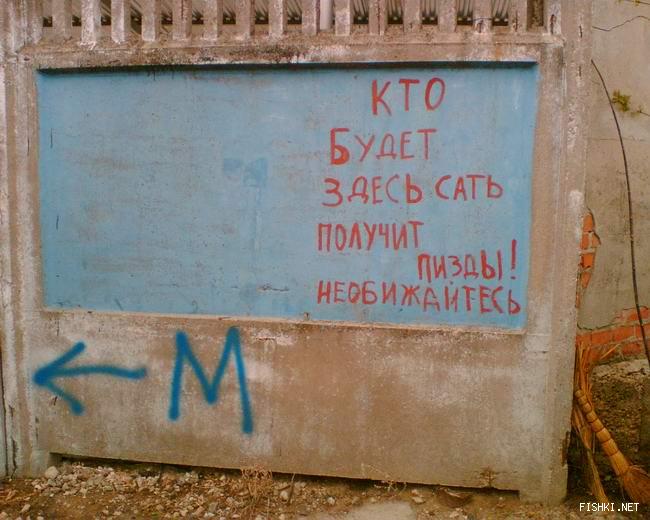 КТО
БУДЕТ
ЗДЕСЬ САТЬ
ПОЛУЧИТ
ПИЗДЫ!
НЕОБИЖАЙТЕСЬ
← М
FISHKI.NET